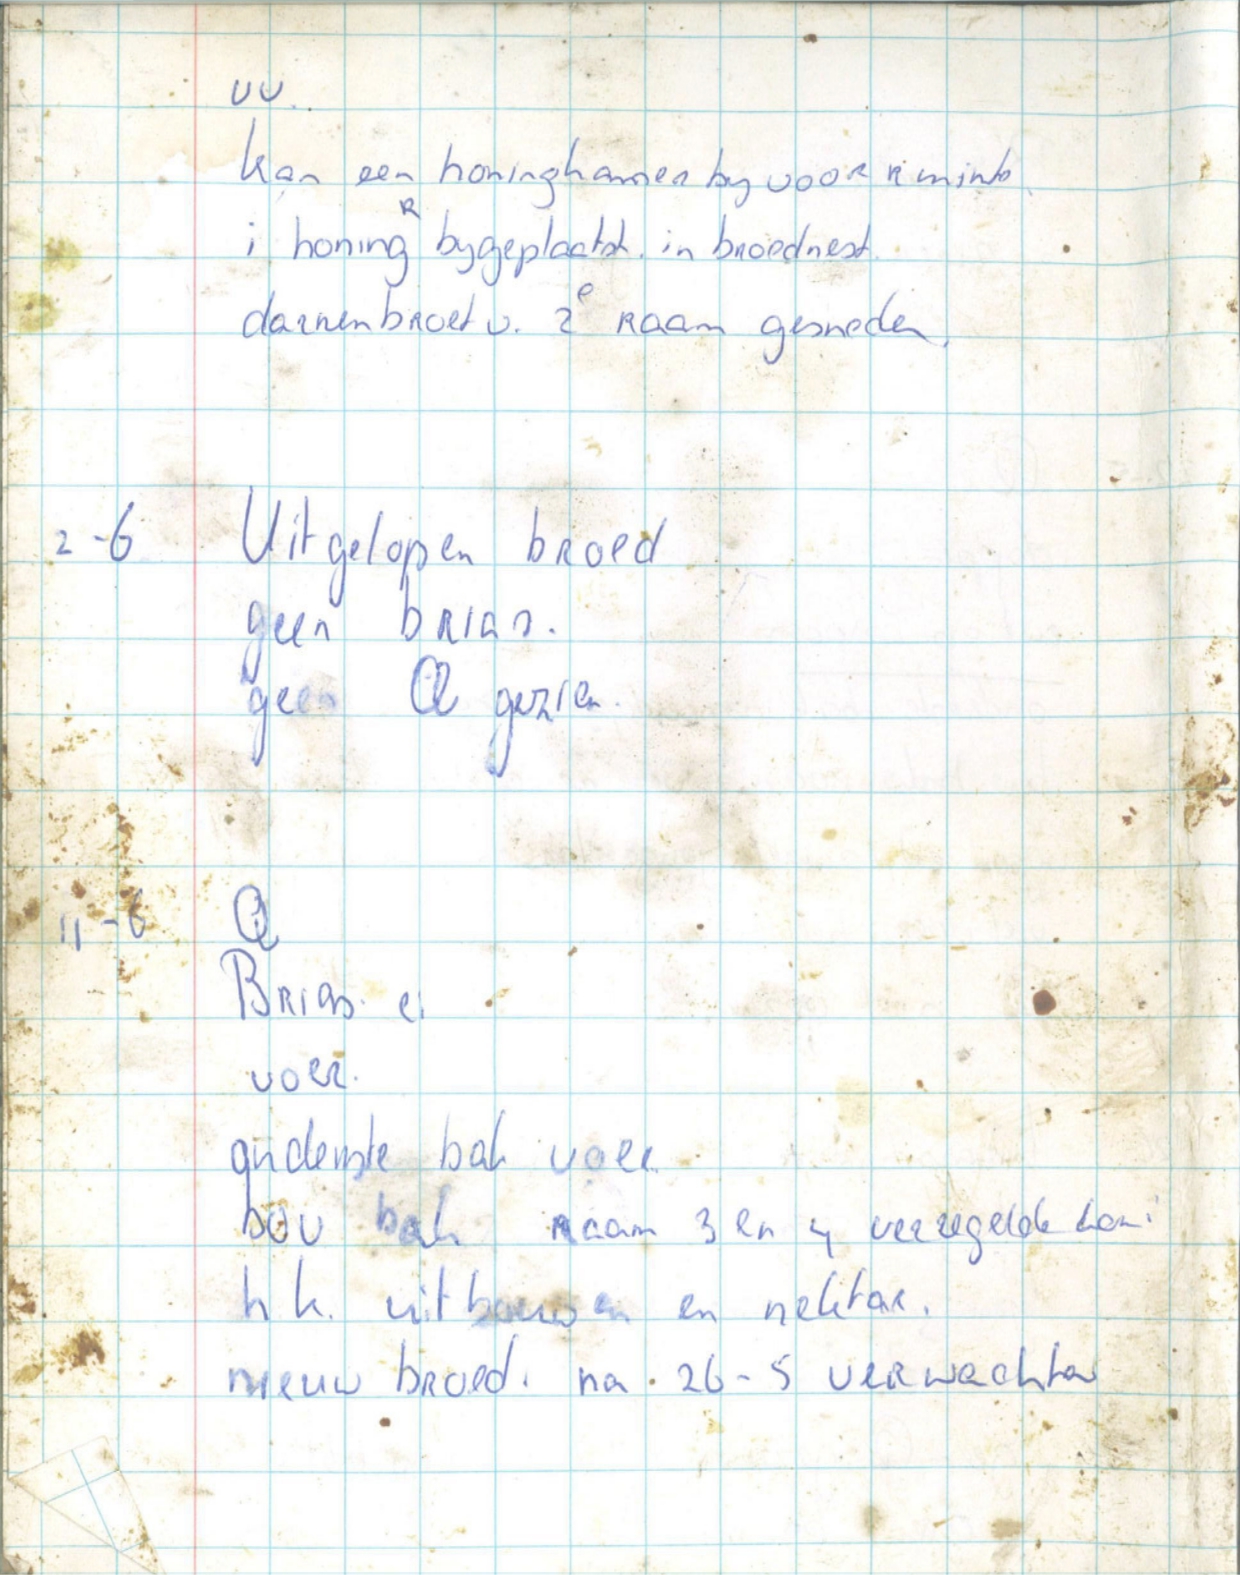 vv.
kan een honinghamer by voor ruimte
R
i honing bygeplaatst. in broednest.
darrenbroet v. 2e raam gesneden.
2-6 Uitgelopen broed
geen brias.
geen Q gezien.
11-6 Q
Brias. ei
voer.
onderste bak voer.
bov bak raam 3 en 4 verzegelde honi
h k. uitbouwen en nektar.
nieuw broed. na. 26-5 verwachten